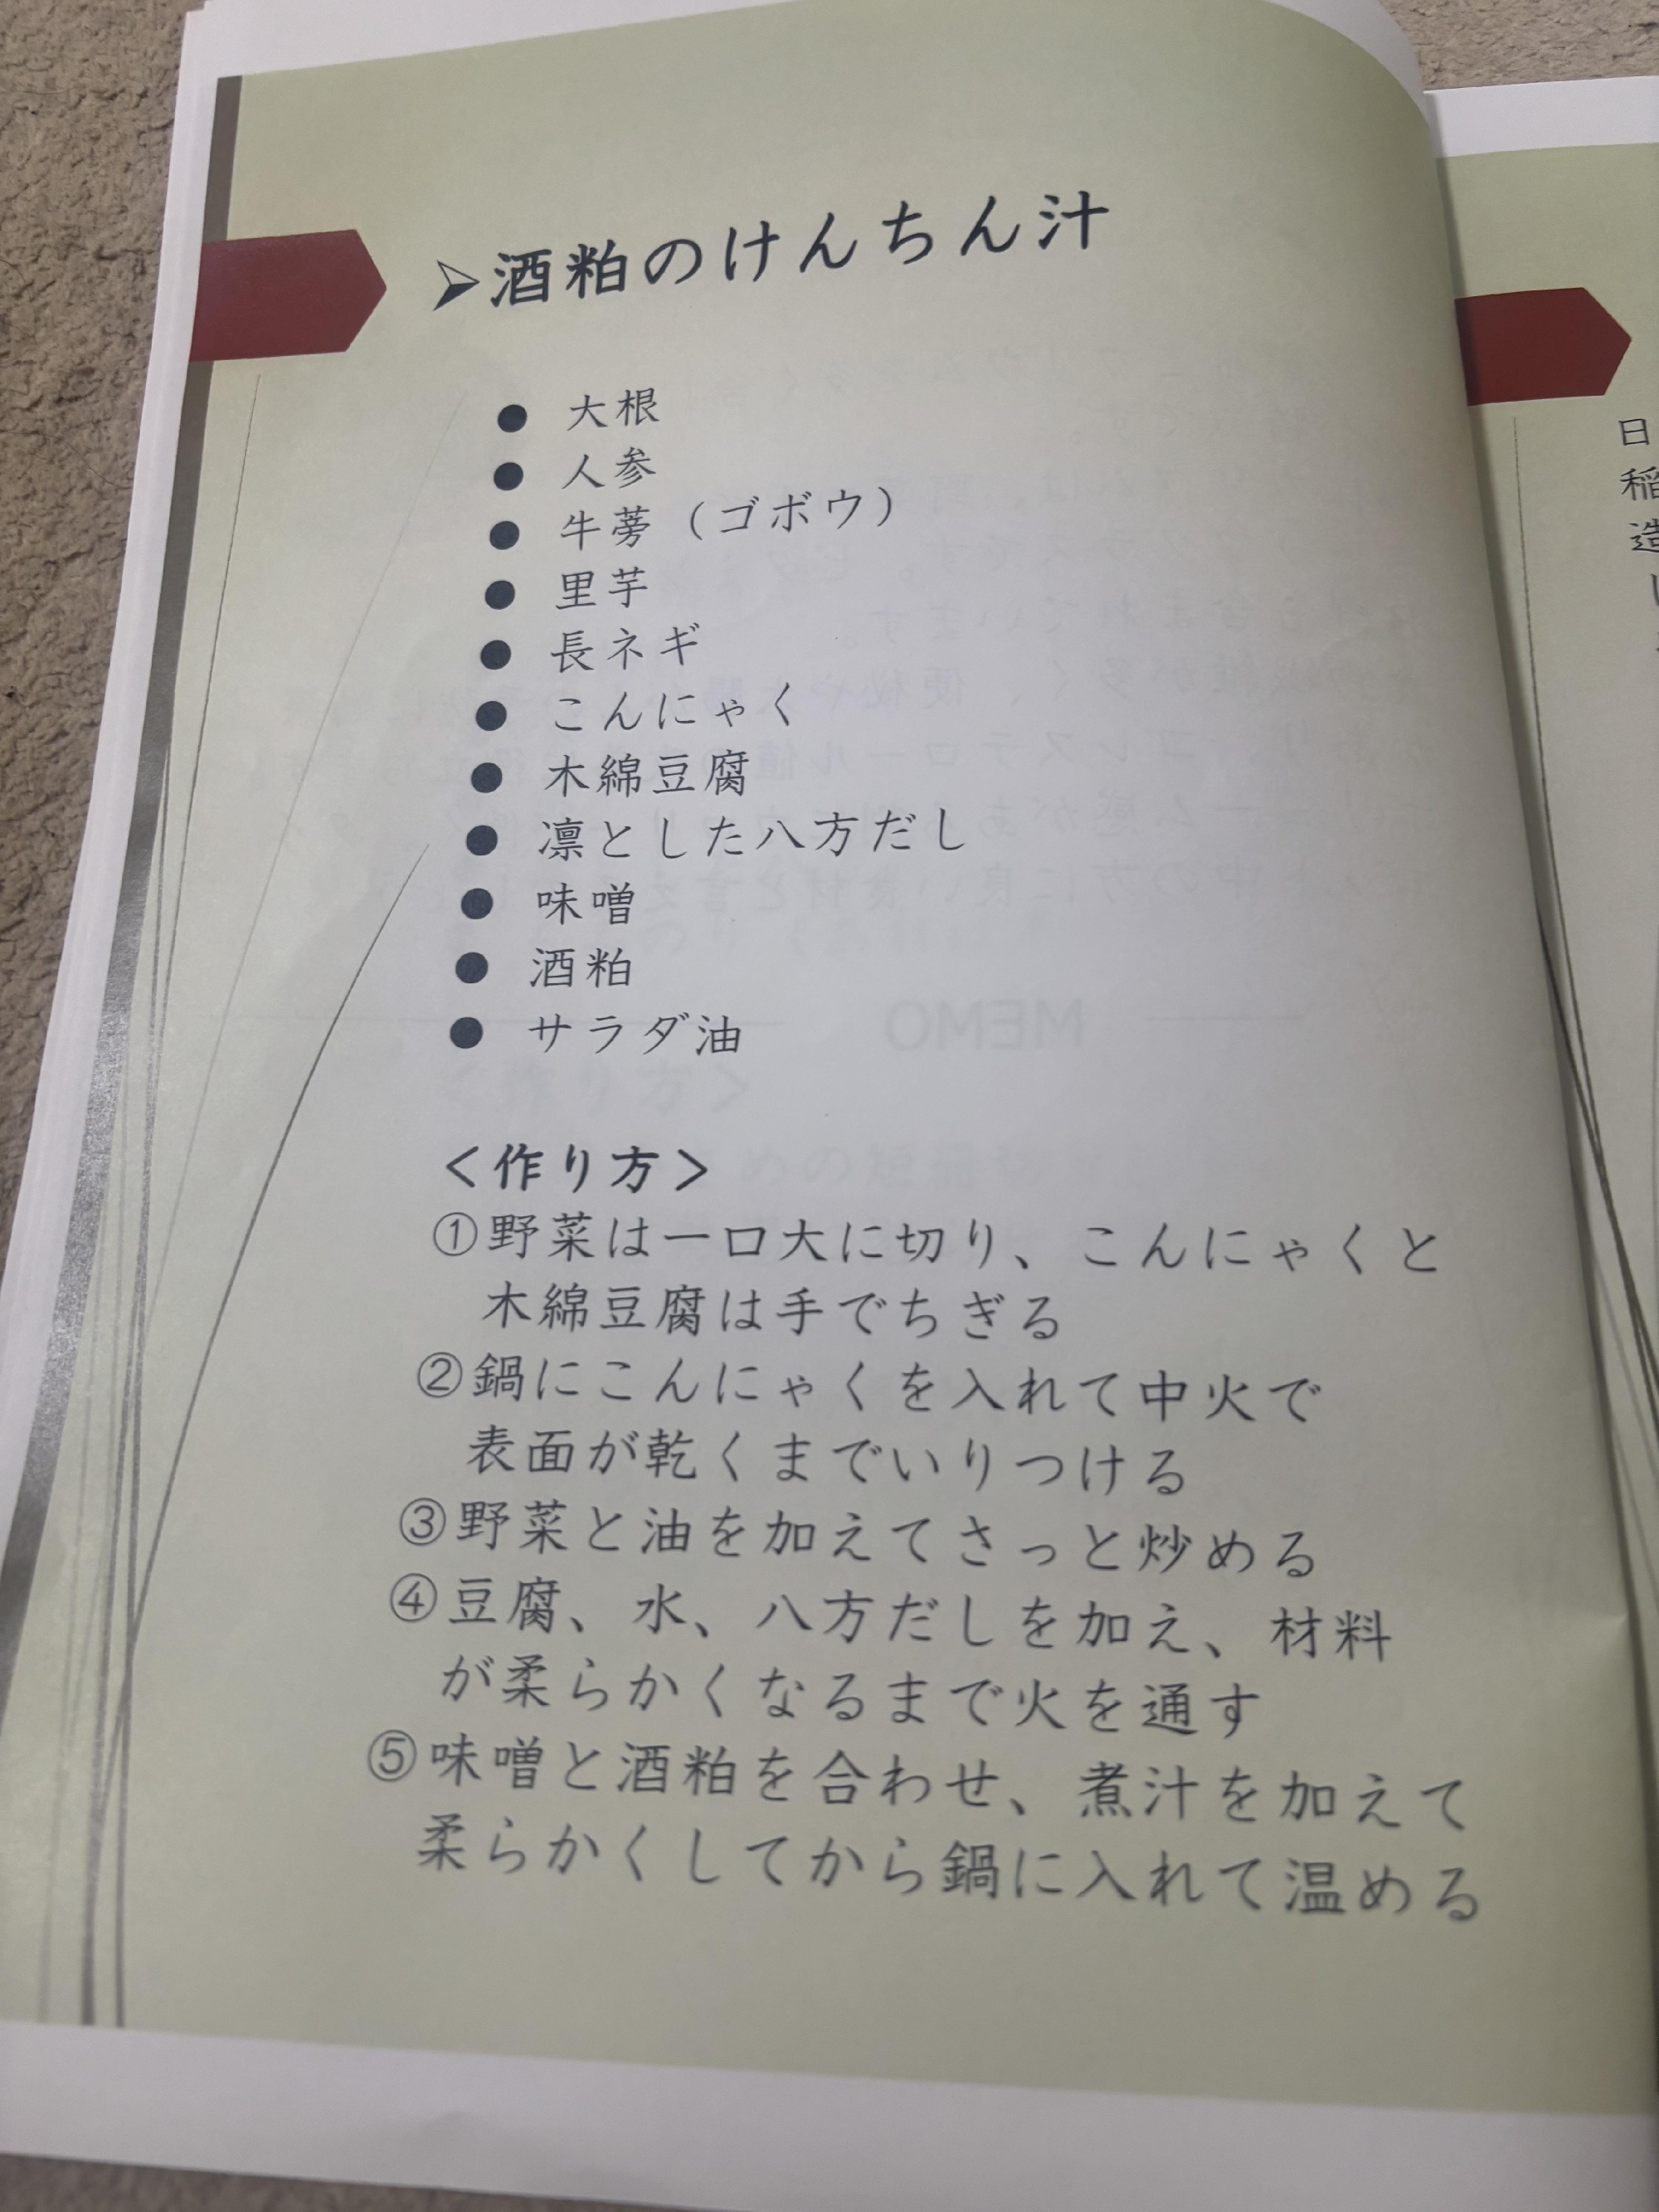 ➢酒粕のけんちん汁
● 大根
● 人参
● 牛蒡（ゴボウ）
● 里芋
● 長ネギ
● こんにゃく
● 木綿豆腐
● 凛とした八方だし
● 味噌
● 酒粕
● サラダ油
＜作り方＞
①野菜は一口大に切り、こんにゃくと
木綿豆腐は手でちぎる
②鍋にこんにゃくを入れて中火で
表面が乾くまでいりつける
③野菜と油を加えてさっと炒める
④豆腐、水、八方だしを加え、材料
が柔らかくなるまで火を通す
⑤味噌と酒粕を合わせ、煮汁を加えて
柔らかくしてから鍋に入れて温める
日
稲
造